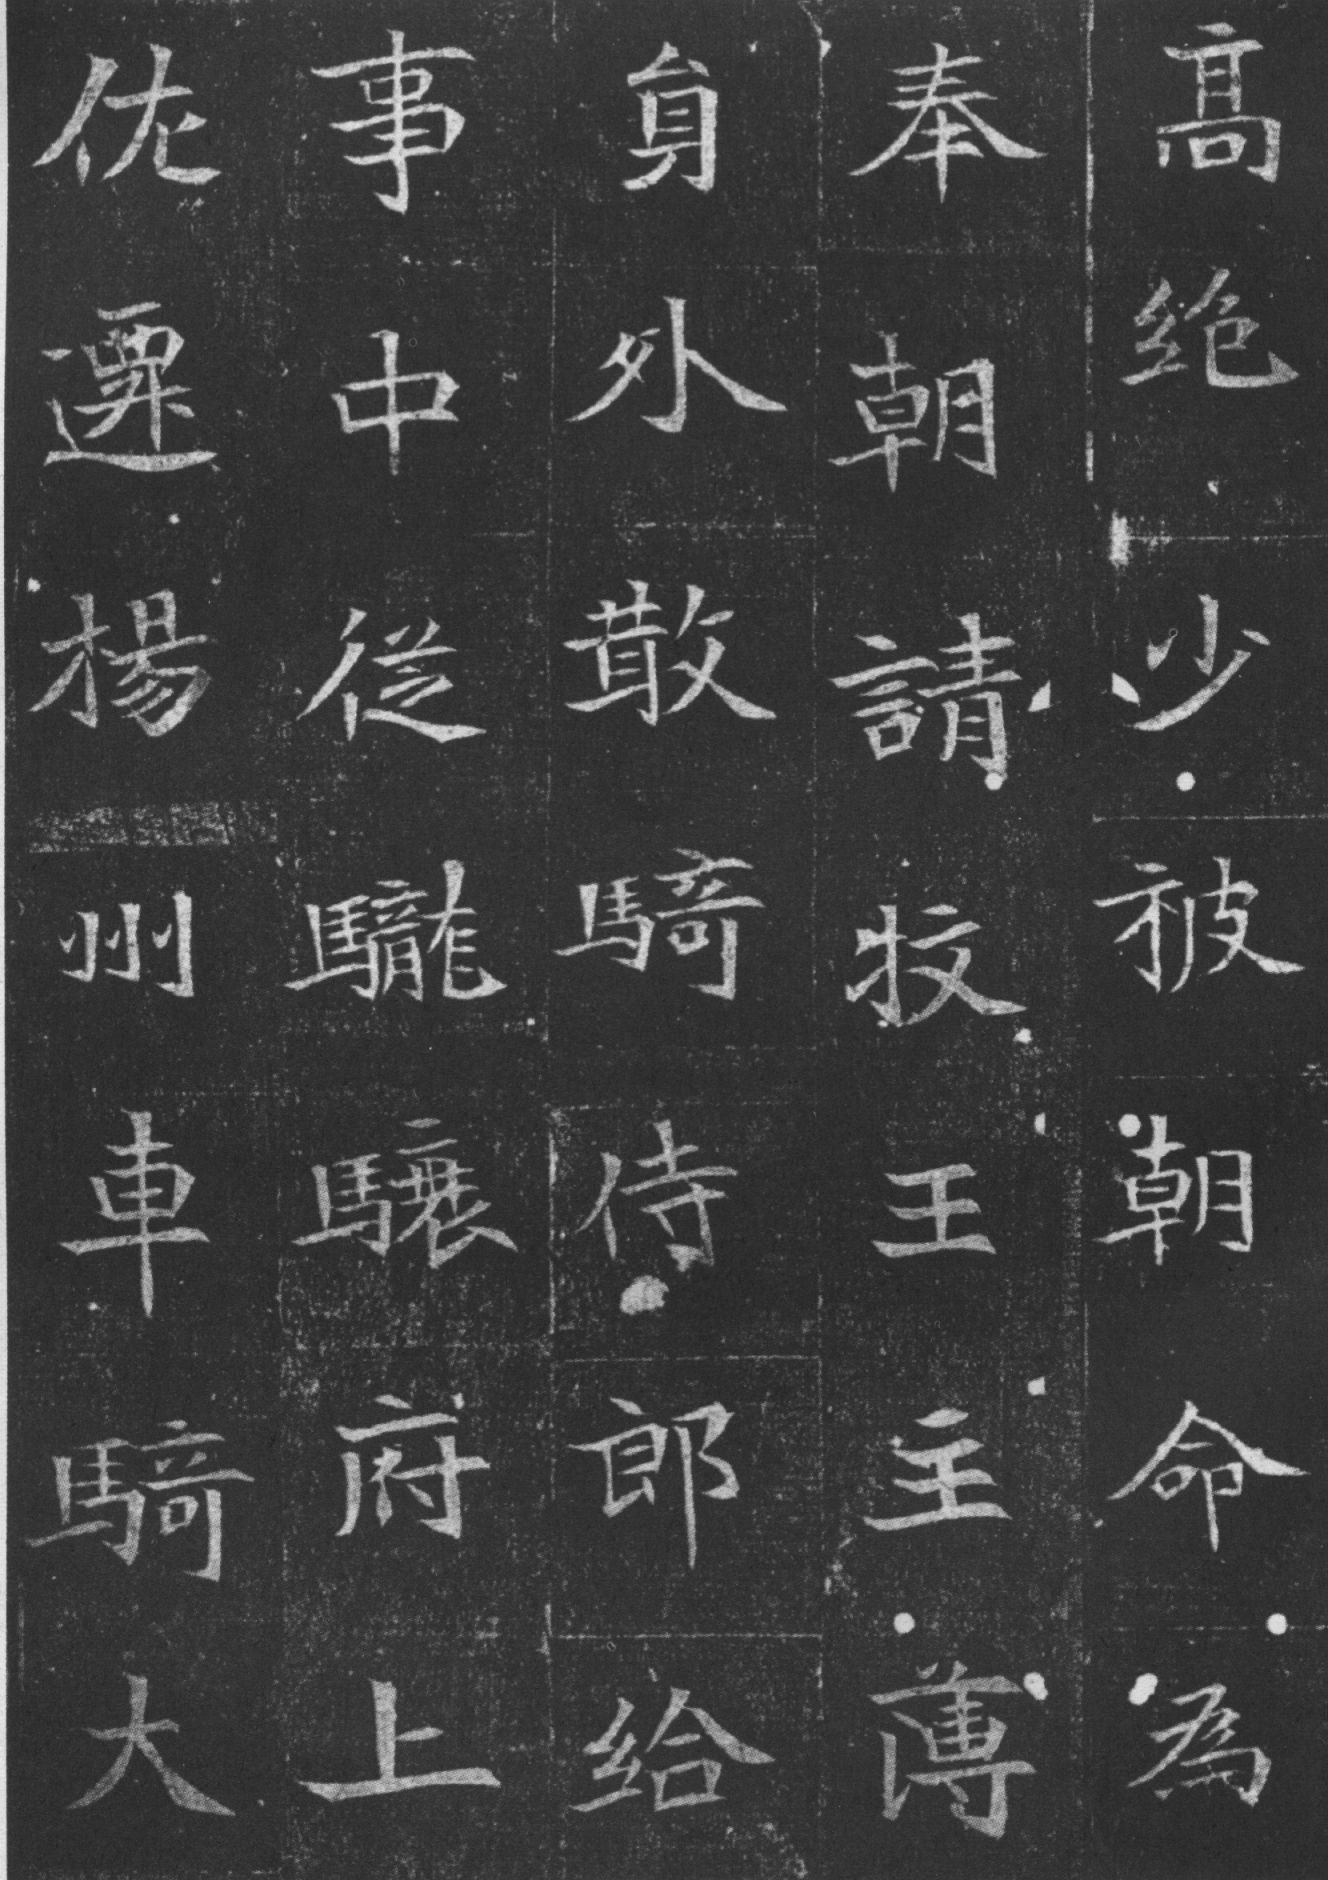 高絶少被朝命為
奉朝請牧王主薄
負外散騎侍郎給
事中從驡驤府上
佐遷楊州車騎大